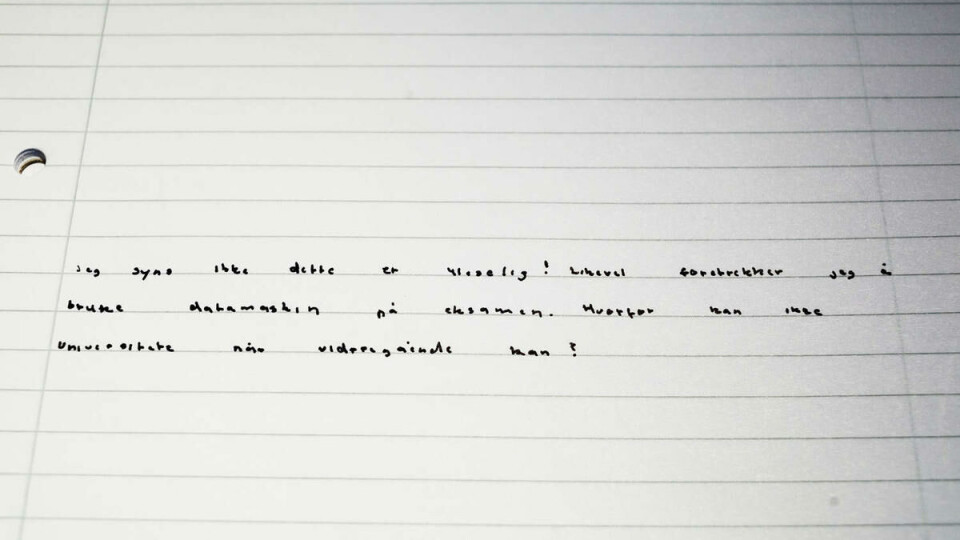 jeg syns ikke dette er uleselig! Likevel foretrekker jeg å
bruke datamaskin på eksamen. Hvorfor kan ikke
universitete når videregående kan?